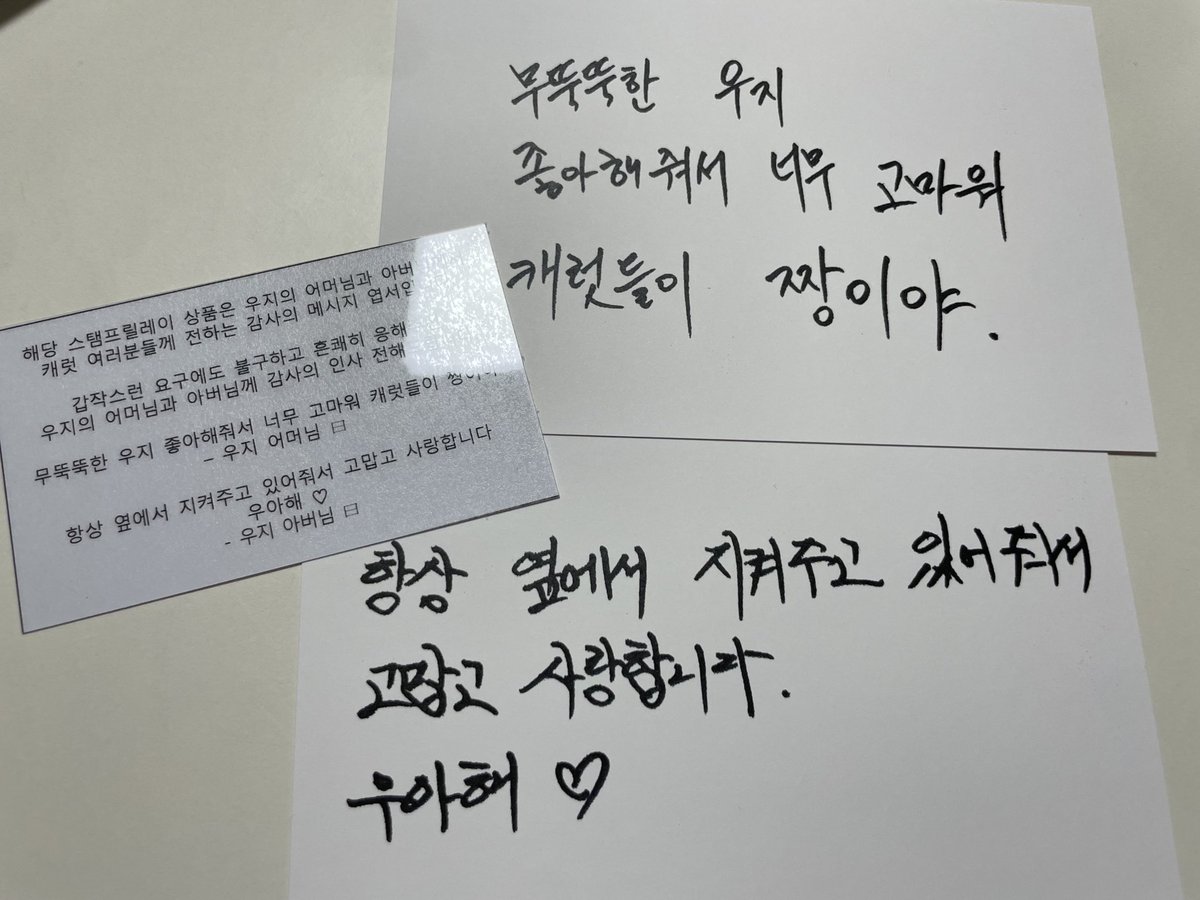 무뚝뚝한 우지
좋아해줘서 너무 고마워
캐럿들이 짱이야.
해당 스탬프릴레이 상품은 우지의 어머님과
캐럿 여러분들께 전하는 감사의 메시지
갑작스런 요구에도 불구하고 흔쾌히 응해
우지의 어머님과 아버님께 감사의 인사 전해
무뚝뚝한 우지 좋아해줘서 너무 고마워 캐럿들이
- 우지 어머님 日
항상 옆에서 지켜주고 있어줘서 고맙고 사랑합니다
우아해 ♡
- 우지 아버님 日
항상 옆에서 지켜주고 있어줘서
고맙고 사랑합니다.
우아해 ♡